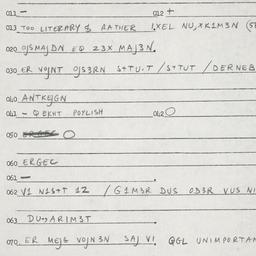 011 — 012 +
013 TOO LITERARY & RATHER
020 OJSMAJDN EQ 23X MAJ3N.
030 ER VOJNT OJS3RN S+TU.T / S+TUT / DERNEB
040 ANTKEJGN
041 — QEKHT POYLISH 042 O
050 O
060 ERGEC
061 —
062 V1 N1S+T 12 / G1M3R DUS OD3R VUS NI
063 DU.ARIMST
070 ER MEJG VOJN3N SAJ V1 QGL UNIMPORTAN